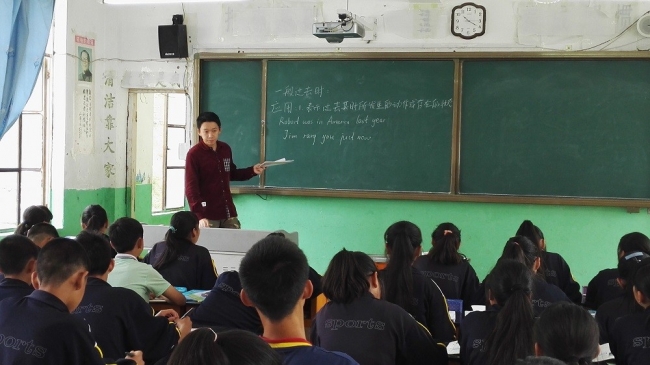 清洁靠大家
一般过去时.
应用: 1. 表示过去某时所发生的动作或存在的状
Robert was in America last year.
Jim rang you just now.
sports
sports
sports
sports
sports